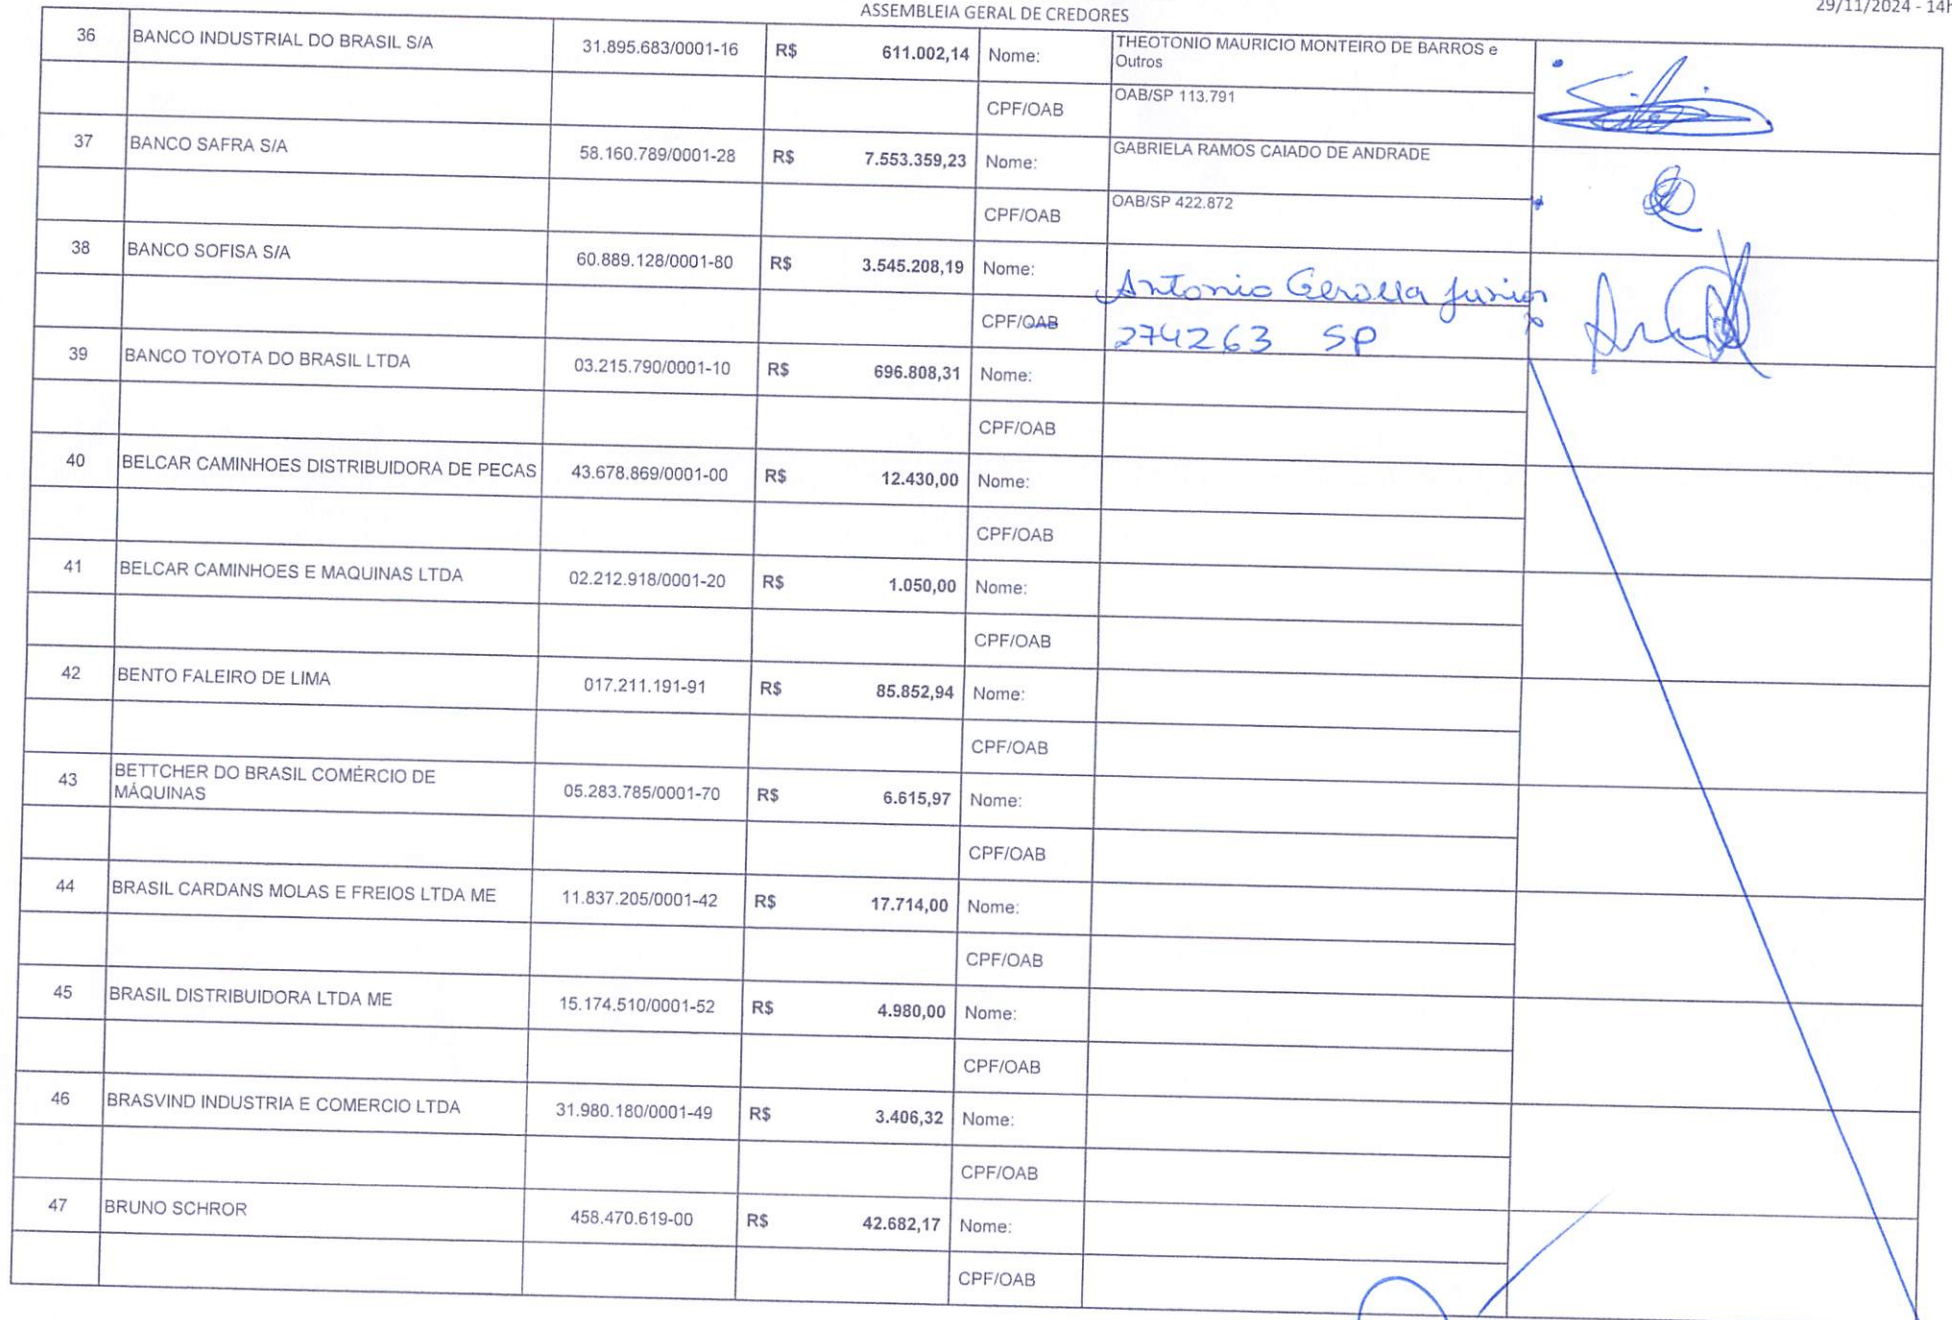 ASSEMBLEIA GERAL DE CREDORES
29/11/2024 - 14h
36 BANCO INDUSTRIAL DO BRASIL S/A 31.895.683/0001-16 R$ 611.002,14 Nome: THEOTONIO MAURICIO MONTEIRO DE BARROS e
Outros
CPF/OAB OAB/SP 113.791
37 BANCO SAFRA S/A 58.160.789/0001-28 R$ 7.553.359,23 Nome: GABRIELA RAMOS CAIADO DE ANDRADE
CPF/OAB OAB/SP 422.872
38 BANCO SOFISA S/A 60.889.128/0001-80 R$ 3.545.208,19 Nome: Antonio Gerolla Junior
CPF/OAB 274263 SP
39 BANCO TOYOTA DO BRASIL LTDA 03.215.790/0001-10 R$ 696.808,31 Nome:
CPF/OAB
40 BELCAR CAMINHOES DISTRIBUIDORA DE PECAS 43.678.869/0001-00 R$ 12.430,00 Nome:
CPF/OAB
41 BELCAR CAMINHOES E MAQUINAS LTDA 02.212.918/0001-20 R$ 1.050,00 Nome:
CPF/OAB
42 BENTO FALEIRO DE LIMA 017.211.191-91 R$ 85.852,94 Nome:
CPF/OAB
43 BETTCHER DO BRASIL COMÉRCIO DE
MÁQUINAS 05.283.785/0001-70 R$ 6.615,97 Nome:
CPF/OAB
44 BRASIL CARDANS MOLAS E FREIOS LTDA ME 11.837.205/0001-42 R$ 17.714,00 Nome:
CPF/OAB
45 BRASIL DISTRIBUIDORA LTDA ME 15.174.510/0001-52 R$ 4.980,00 Nome:
CPF/OAB
46 BRASVIND INDUSTRIA E COMERCIO LTDA 31.980.180/0001-49 R$ 3.406,32 Nome:
CPF/OAB
47 BRUNO SCHROR 458.470.619-00 R$ 42.682,17 Nome:
CPF/OAB